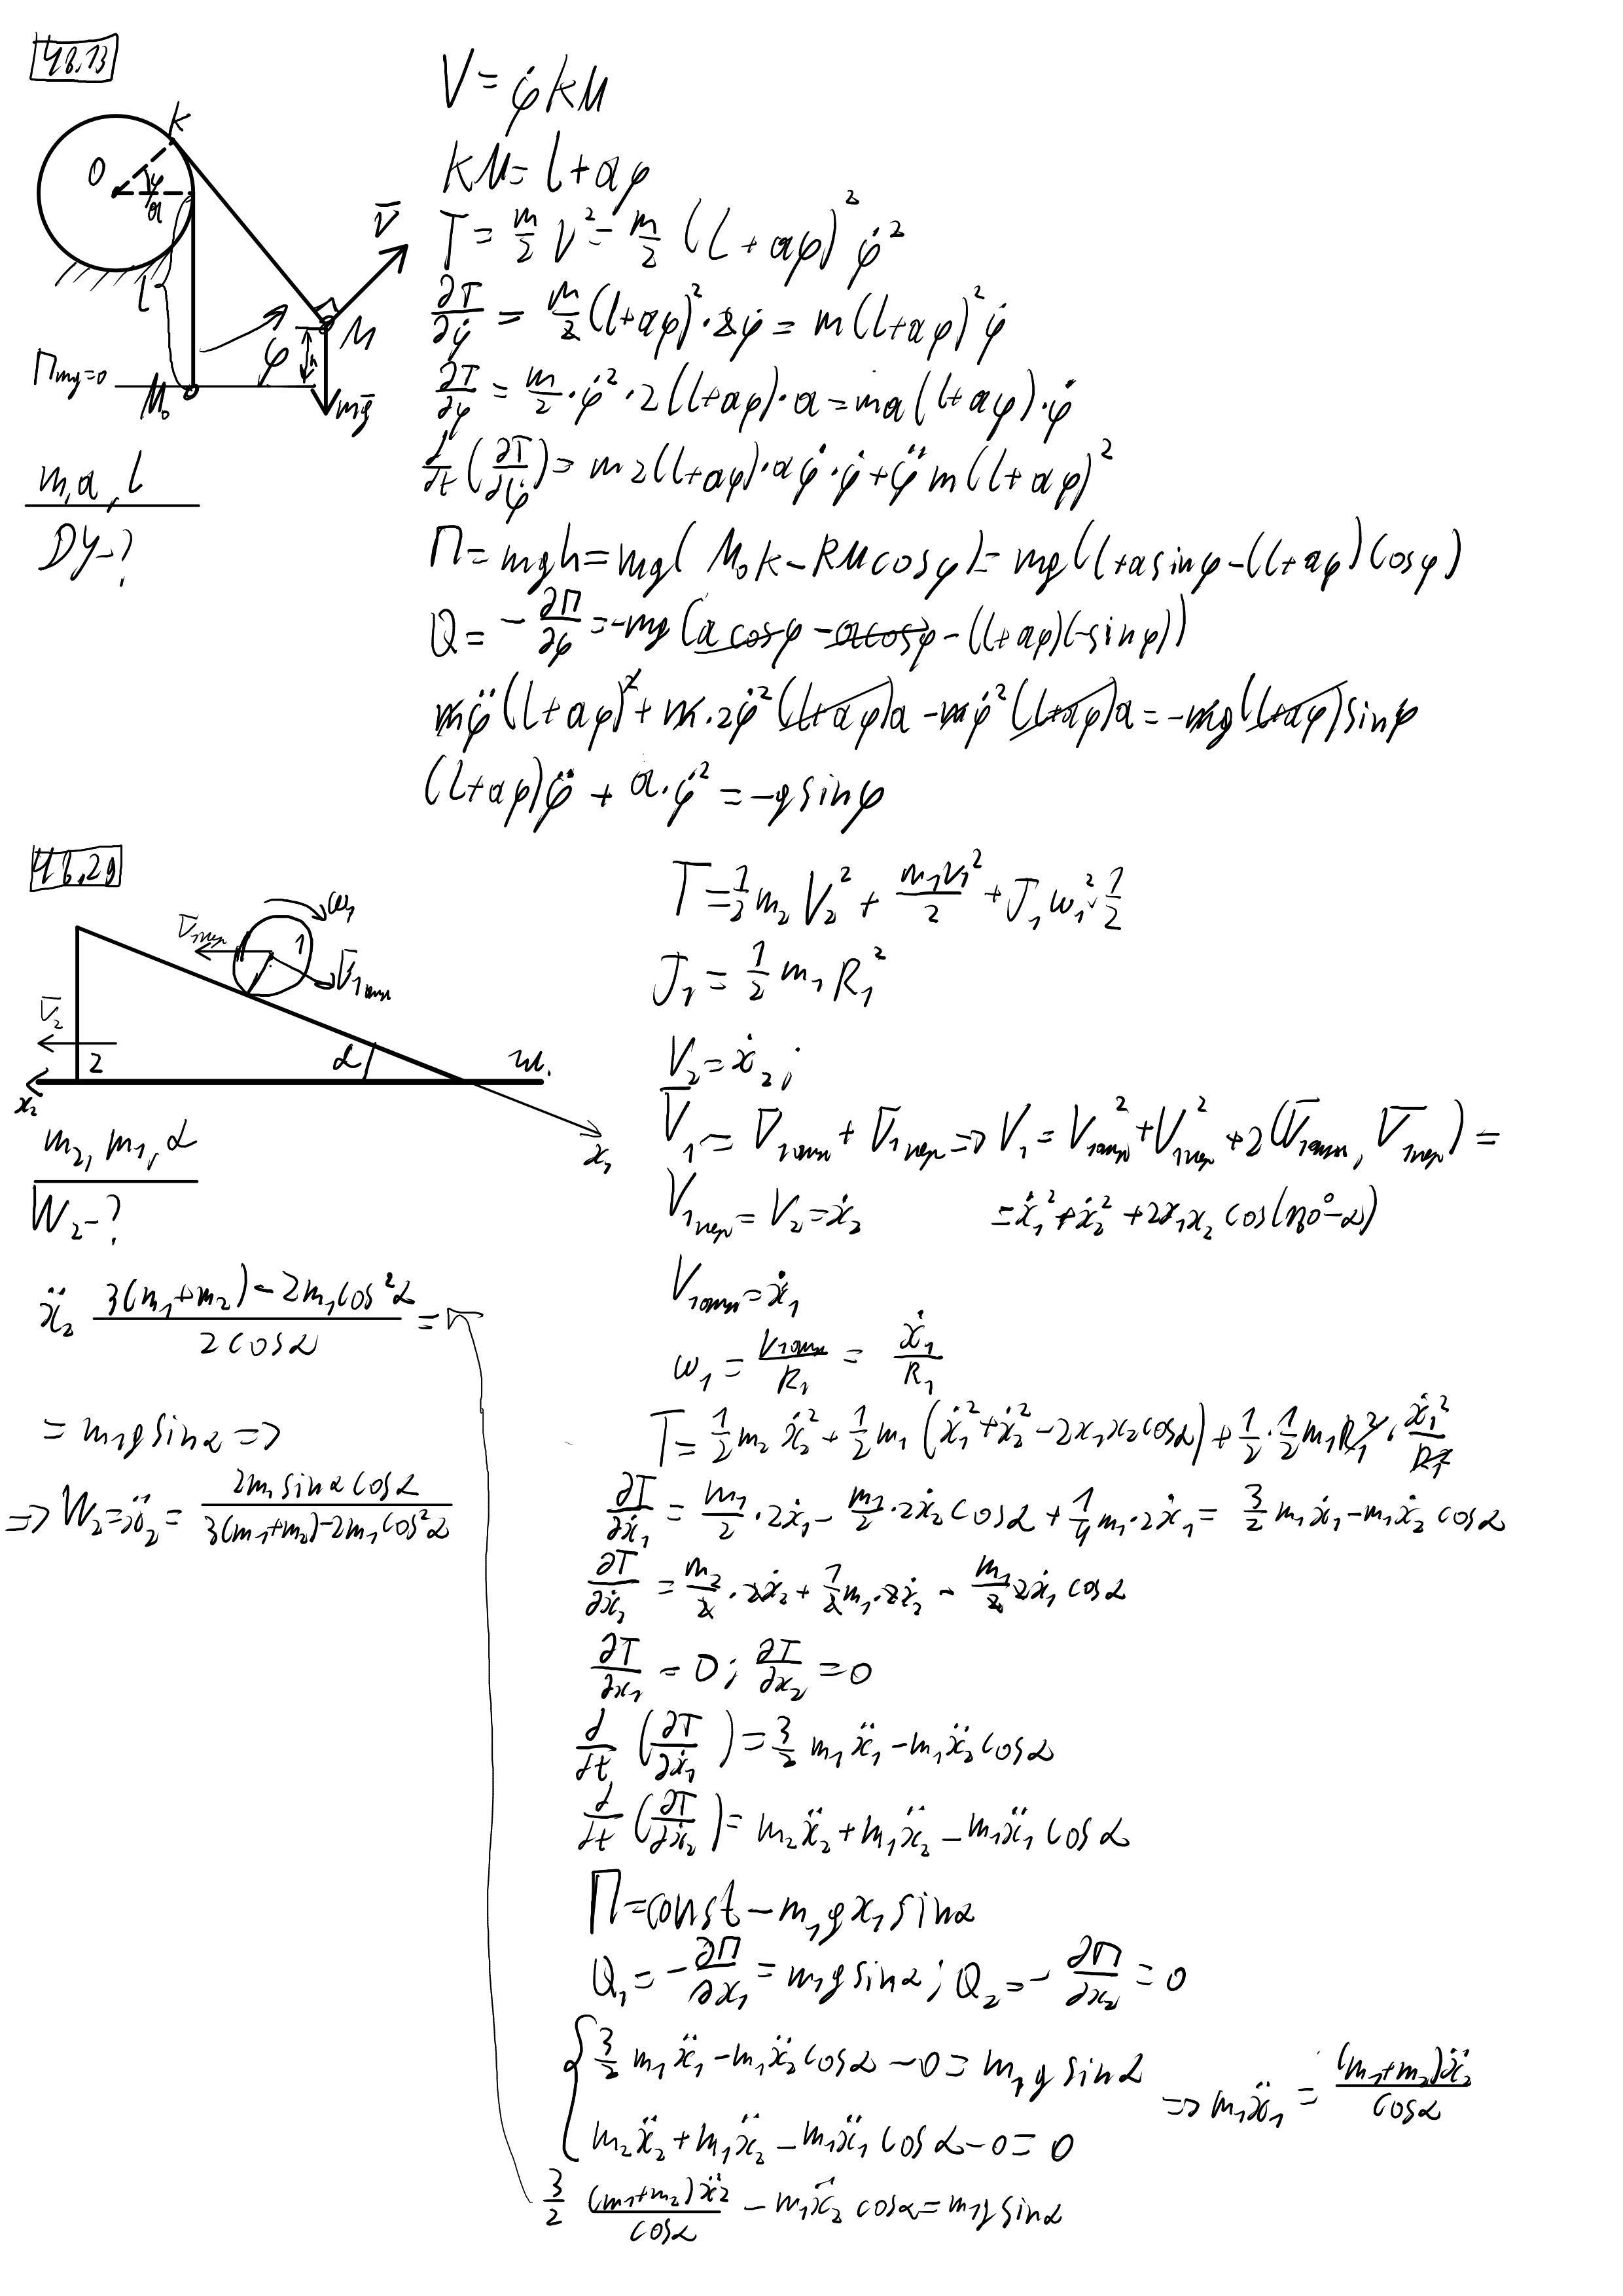 48.13
K
O
φ
a
V̅
l
M
φ
h
П mg=0
M₀
mg̅
m, a, l
ДУ-?
V = φ̇ KM
KM = l + aφ
T = m/2 V² = m/2 (l + aφ)² φ̇²
∂T/∂φ̇ = m/2 (l+aφ)² · 2φ̇ = m(l+aφ)² φ̇
∂T/∂φ = m/2 · φ̇² · 2(l+aφ) · a = ma(l+aφ) · φ̇
d/dt (∂T/∂φ̇) = m2(l+aφ) · aφ̇ · φ̇ + φ̈ m(l+aφ)²
П = mgh = mg(M₀K - KM cosφ) = mg(l+a sinφ - (l+aφ)cosφ)
Q = -∂П/∂φ = -mg(a cosφ - a cosφ - (l+aφ)(-sinφ))
mφ̈(l+aφ)² + m·2φ̇²(l+aφ)a - mφ̇²(l+aφ)a = -mg(l+aφ)sinφ
(l+aφ)φ̈ + a·φ̇² = -g sinφ
48.29
ω₁
V̅₁пер
1
V̅₁отн
V̅₂
2
α
ш.
x₂
x₁
m₂, m₁, α
W₂-?
ẍ₂ (3(m₁+m₂) - 2m₁cos²α)/(2cosα) =
= m₁g sinα =>
=> W₂ = ẍ₂ = (2m₁ sinα cosα)/(3(m₁+m₂)-2m₁cos²α)
T = 1/2 m₂V₂² + m₁V₁²/2 + J₁ω₁² · 1/2
J₁ = 1/2 m₁R₁²
V₂ = ẋ₂;
V̅₁ = V̅₁отн + V̅₁пер => V₁ = V₁отн² + V₁пер² + 2(V̅₁отн, V̅₁пер) =
V₁пер = V₂ = ẋ₂
= ẋ₁² + ẋ₂² + 2x₁x₂ cos(180°-α)
V₁отн = ẋ₁
ω₁ = V₁отн/R₁ = ẋ₁/R₁
T = 1/2 m₂ẋ₂² + 1/2 m₁(ẋ₁² + ẋ₂² - 2x₁x₂cosα) + 1/2 · 1/2 m₁R₁² · ẋ₁²/R₁²
∂T/∂ẋ₁ = m₁/2 · 2ẋ₁ - m₁/2 · 2ẋ₂ cosα + 1/4 m₁ · 2ẋ₁ = 3/2 m₁ẋ₁ - m₁ẋ₂ cosα
∂T/∂ẋ₂ = m₂/2 · 2ẋ₂ + 1/2 m₁ · 2ẋ₂ - m₁/2 2ẋ₁ cosα
∂T/∂x₁ = 0; ∂T/∂x₂ = 0
d/dt (∂T/∂ẋ₁) = 3/2 m₁ẍ₁ - m₁ẍ₂cosα
d/dt (∂T/∂ẋ₂) = m₂ẍ₂ + m₁ẍ₂ - m₁ẍ₁ cosα
П = const - m₁gx₁ sinα
Q₁ = -∂П/∂x₁ = m₁g sinα; Q₂ = -∂П/∂x₂ = 0
3/2 m₁ẍ₁ - m₁ẍ₂cosα - 0 = m₁g sinα
=> m₁ẍ₁ = (m₁+m₂)ẍ₂/cosα
m₂ẍ₂ + m₁ẍ₂ - m₁ẍ₁ cosα - 0 = 0
3/2 (m₁+m₂)ẍ₂/cosα - m₁ẍ₂ cosα = m₁g sinα